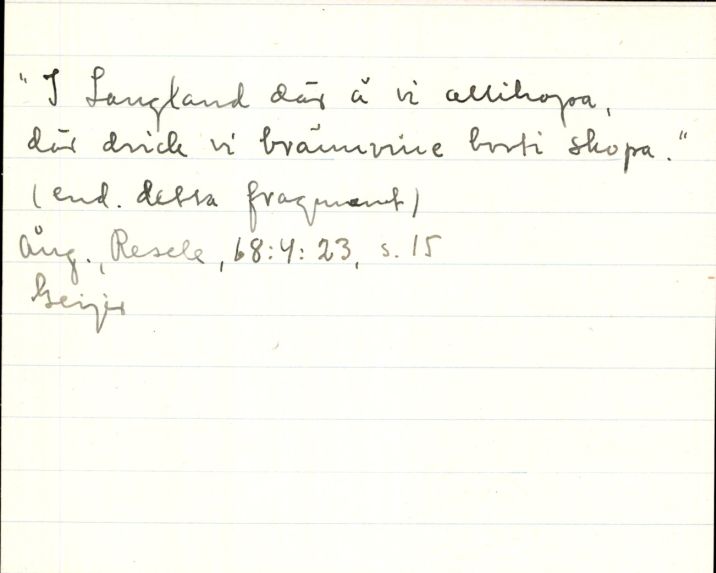 "I Langland där ä vi allihopa,
där drick vi brännvine borti skopa."
(end. detta fragment)
Ång., Resele, 68:4:23, s. 15
Geijer